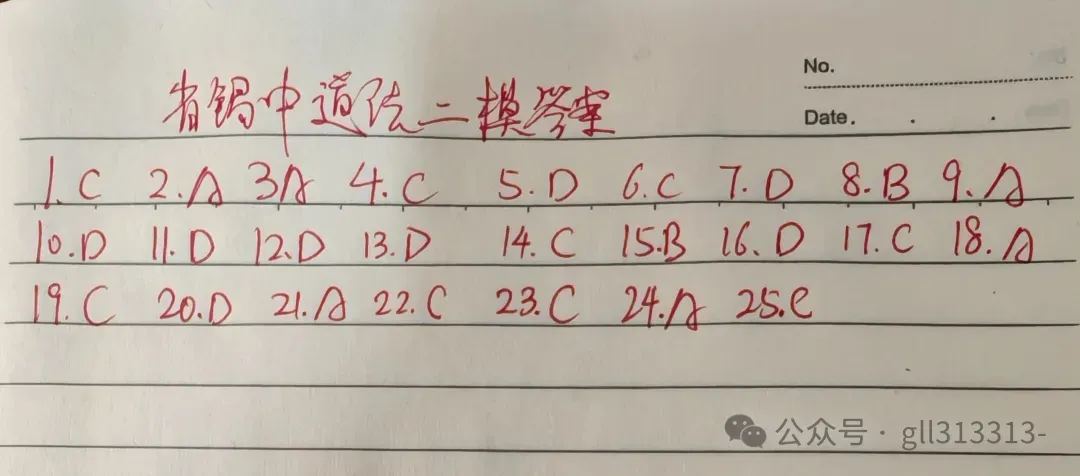 No.
省锡中道法二模答案
Date.
1.C 2.A 3A 4.C 5.D 6.C 7.D 8.B 9.A
10.D 11.D 12.D 13.D 14.C 15.B 16.D 17.C 18.A
19.C 20.D 21.A 22.C 23.C 24.A 25.C
公众号·gll313313-